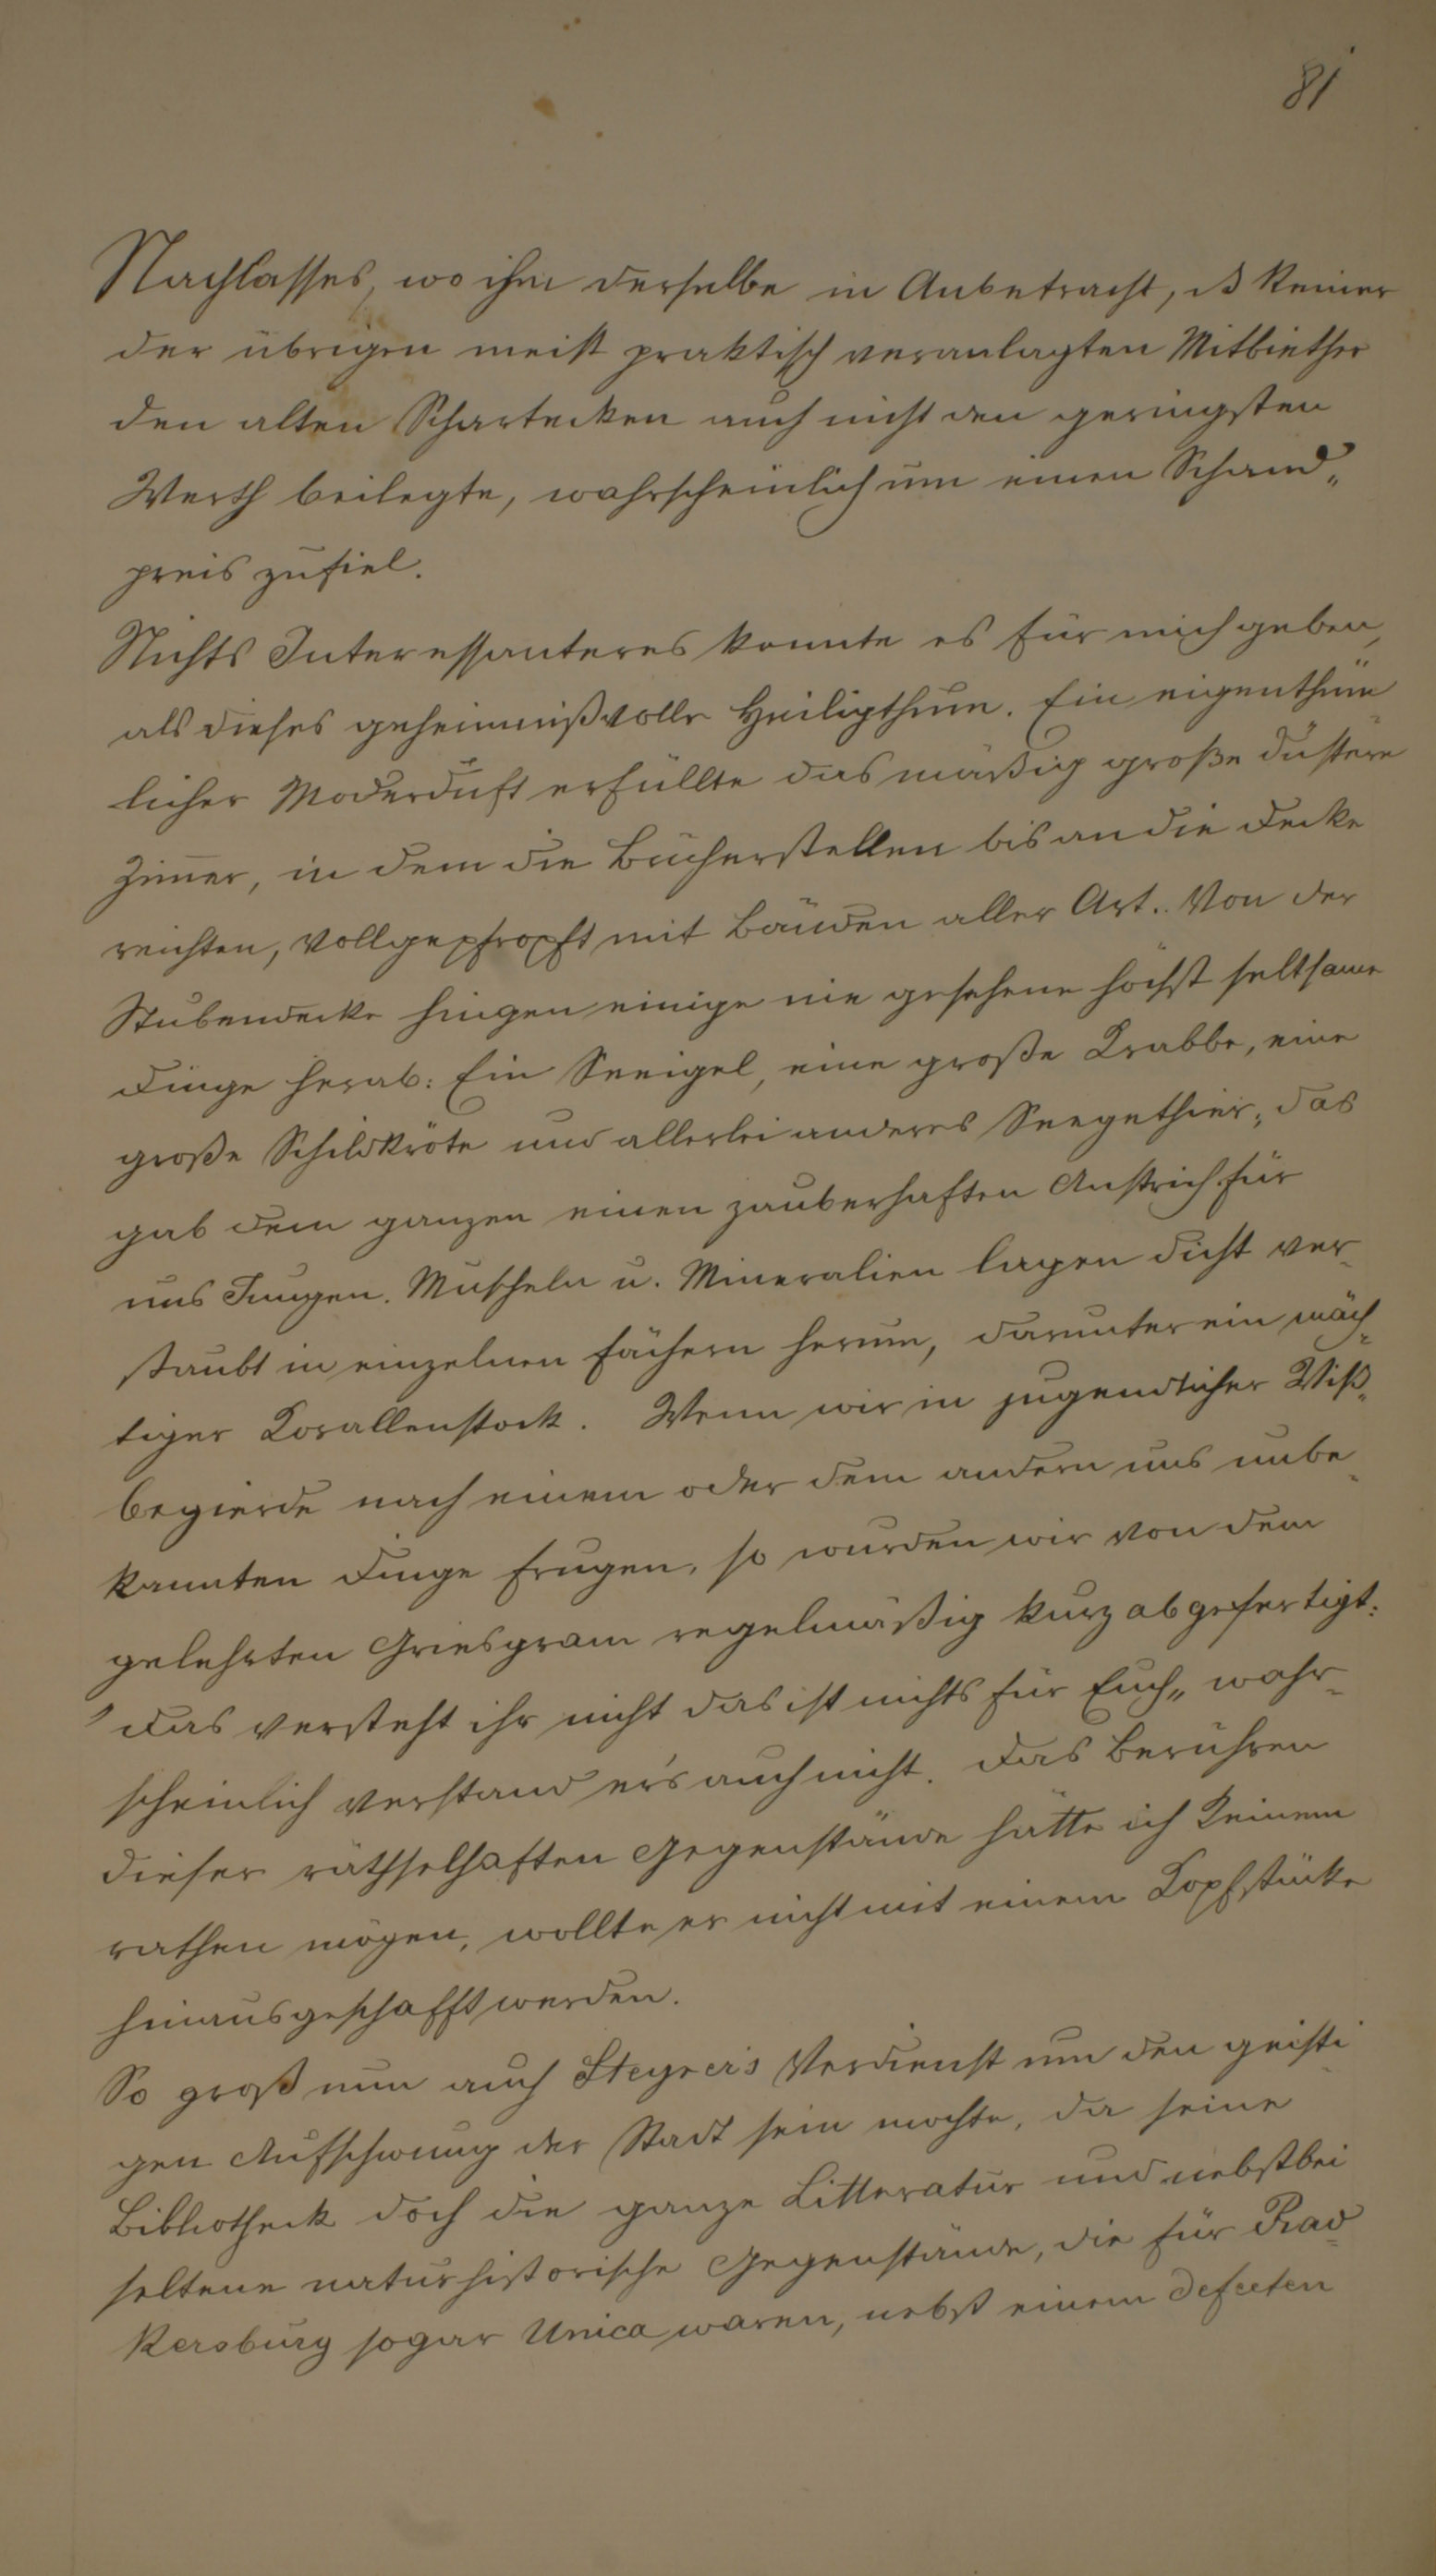 81
Nachlasses, wo ihm derselbe in Anbetracht, dß keiner
der übrigen meist praktisch veranlagten Mitbiether
den alten Schartecken auch nicht den geringsten
Werth beilegte, wahrscheinlich um einen Schand„
preis zufiel.
Nichts Interessanteres konnte es für mich geben,
als dieses geheimnißvolle Heiligthum. Ein eigenthüm
licher Moderduft erfüllte das mäßig große düstere
Zimer, in dem die Bücherstellen bis an die Decke
reichten, vollgepfropft mit Bänden aller Art. Von der
Stubendecke hingen einige nie gesehene höchst seltsame
Dinge herab: Ein Seeigel, eine große Krabbe, eine
große Schildkröte und allerlei anderes Seegethier, das
gab dem ganzen einen zauberhaften Anstrich für
uns Jungen. Muscheln u. Mineralien lagen dicht ver-
staubt in einzelnen Fächern herum, darunter ein mäch-
tiger Korallenstock. Wenn wir in jugendlicher Wiß„
begierde nach einem oder dem andern uns unbe-
kannten Dinge frugen, so wurden wir von dem
gelehrten Griesgram regelmäßig kurz abgefertigt:
"Das versteht ihr nicht das ist nichts für Euch„ wahr-
scheinlich verstand er's auch nicht. Das Berühren
dieser räthselhaften Gegenstände hätte ich Keinem
rathen mögen, wollte er nicht mit einem Kopfstücke
hinausgeschafft werden.
So groß nun auch Steyrer's Verdienst um den geisti
gen Aufschwung der Stadt sein mochte, da seine
Bibliotheck doch die ganze Litteratur und nebstbei
seltene naturhistorische Gegenstände, die für Rad-
kersburg sogar Unica waren, nebst einem defecten